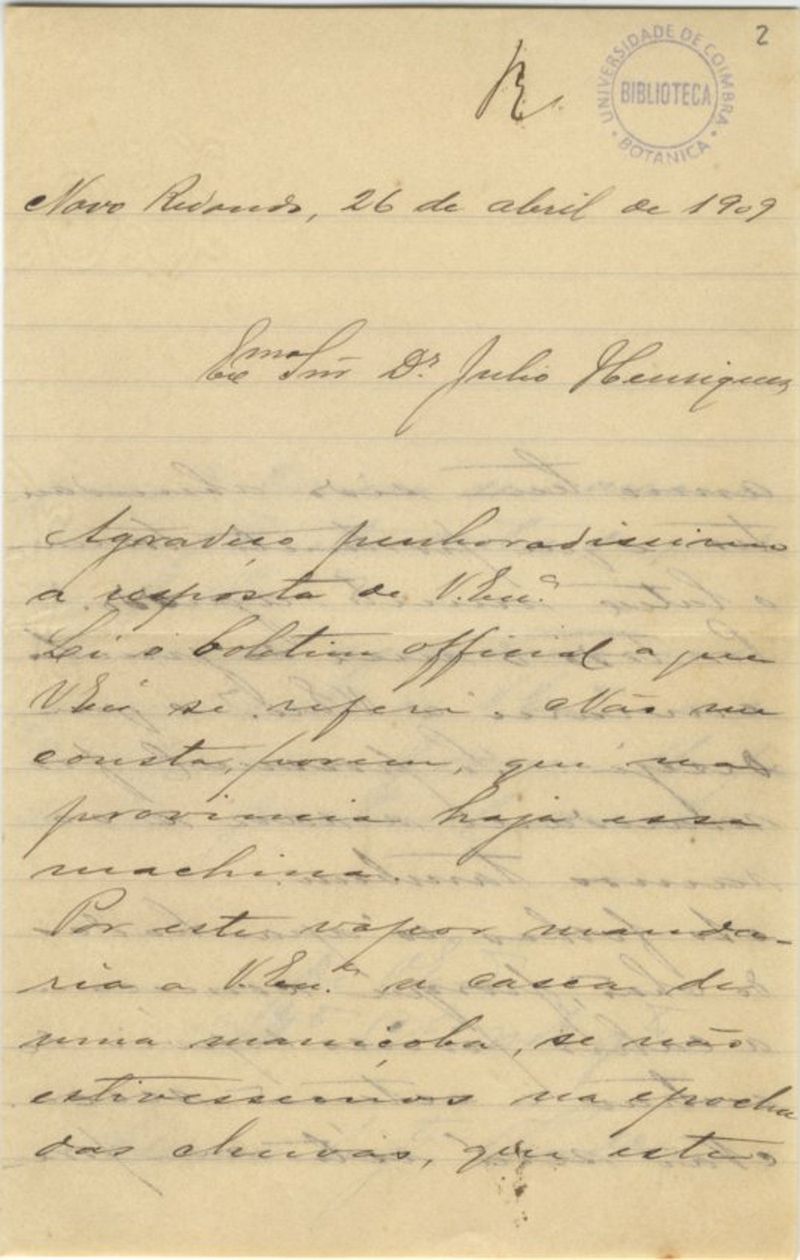 2
R.
UNIVERSIDADE DE COIMBRA
BIBLIOTECA
BOTANICA
Novo Redondo, 26 de abril de 1909
Exmo Snr Dr. Julio Henriques
Agradeço penhoradissimo
a resposta de V. Exa.
Li o boletim official a que
V Exa se refere. Não me
consta, porem, que na
provincia haja essa
machina.
Por este vapor manda-
ria a V. Exa. a casca de
uma maniçoba, se não
estivessemos na epocha
das chuvas, que este